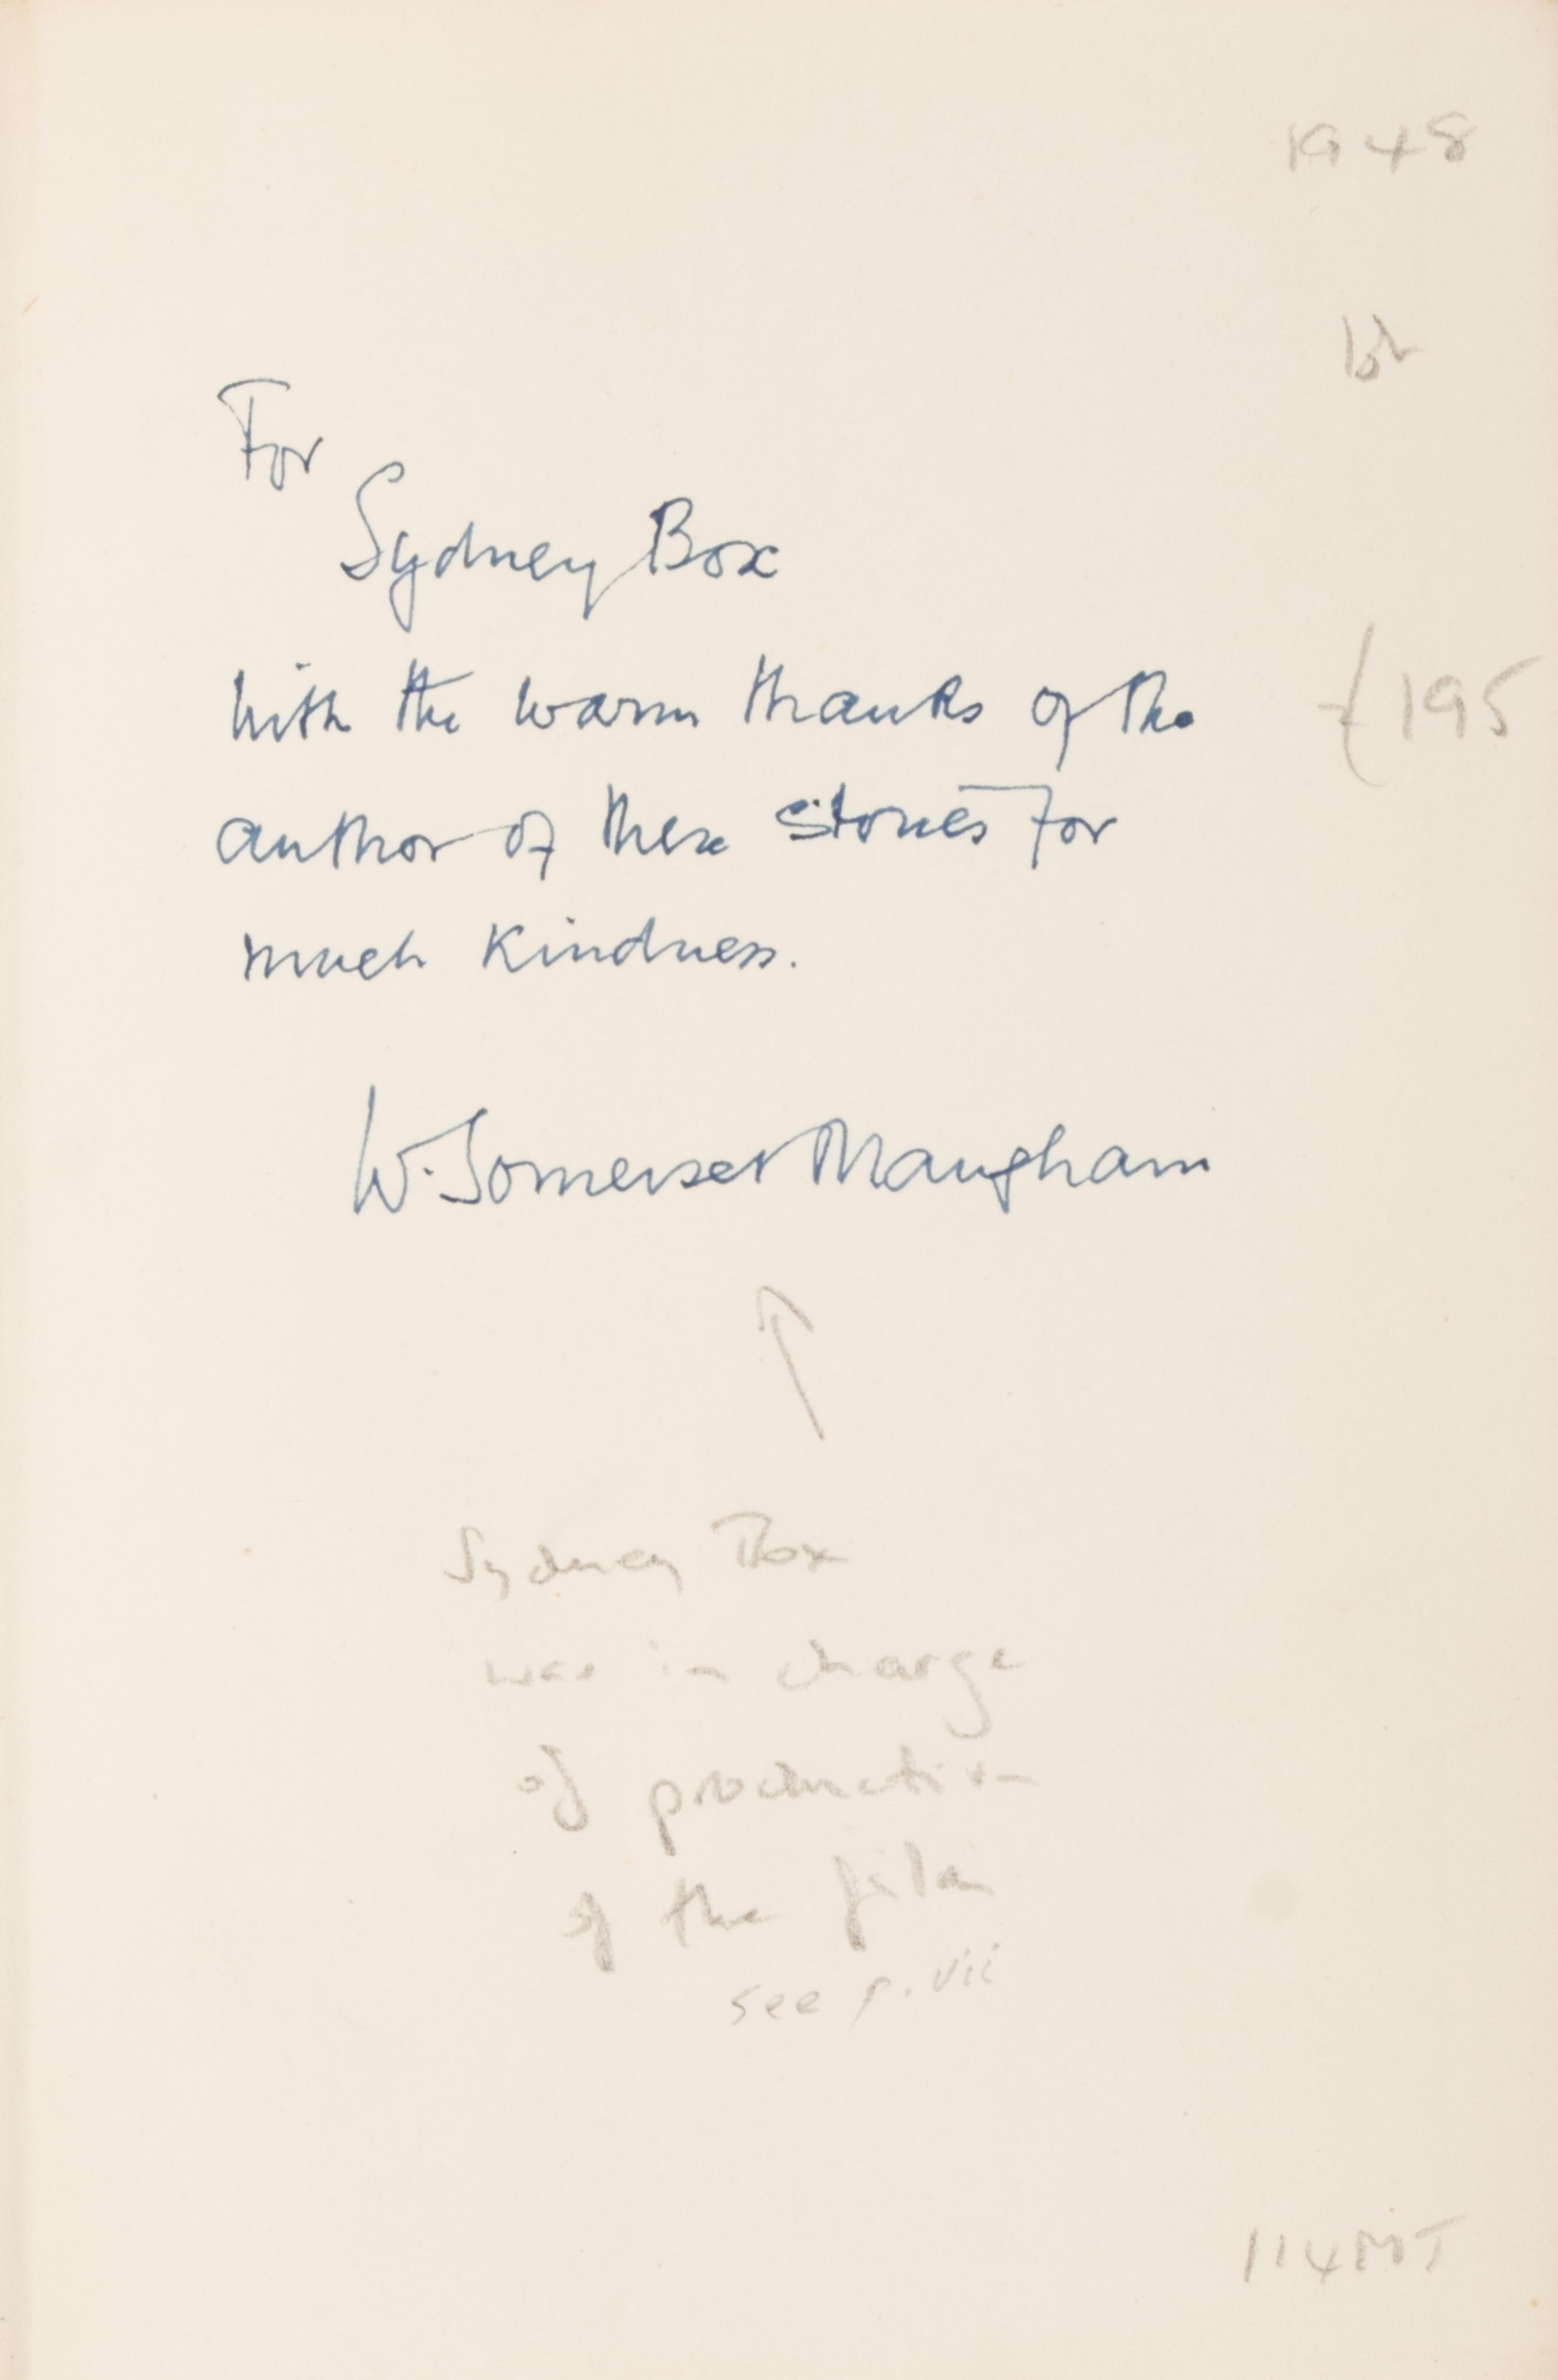 1948
For
Sydney Box
with the warm thanks of the
£195
author of these stories for
much kindness.
W. Somerset Maugham
Sydney Box
was in charge
of production
of the film
see p. vii
114MT